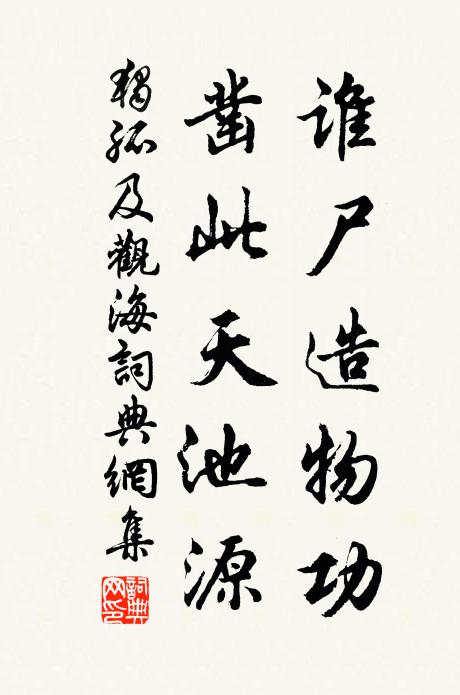 谁尸造物功
凿此天池源
獨孤及觀海詞典網集
詞典网印